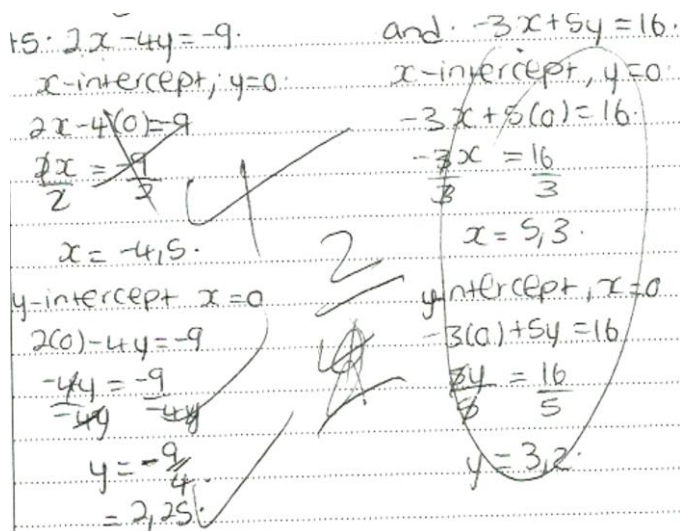 15. 2x - 4y = -9.
x-intercept, y=0.
2x - 4(0) = -9
2x/2 = -9/2
x = -4,5.
y-intercept x=0
2(0) - 4y = -9
-4y/-4y = -9/-4y
y = -9/4.
= 2,25.
2/4
and. -3x + 5y = 16.
x-intercept, y=0.
-3x + 5(0) = 16.
-3x/3 = 16/3
x = 5,3.
y-intercept, x=0
-3(0) + 5y = 16
5y/5 = 16/5
y = 3,2.